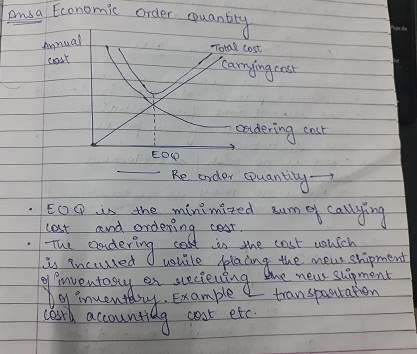 Ans a Economic order quantity
Annual
cost
Total cost
Carrying cost
ordering cost
EOQ
Re order Quantity
EOQ is the minimized sum of carrying
cost and ordering cost.
The ordering cost is the cost which
is incurred while placing the new shipment
of inventory or recieving the new shipment
of inventory. Example transpartation
cost, accounting cost etc.